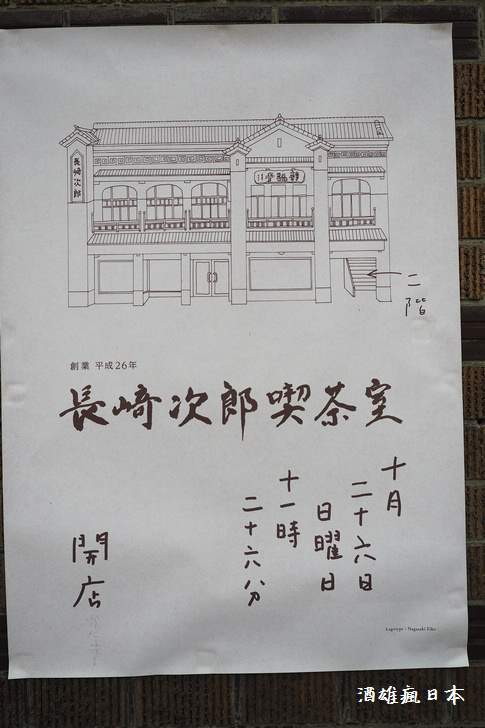 長﨑次郎
二階
創業 平成26年
長﨑次郎喫茶室
十月
二十六日
日曜日
十一時
二十六分
開店
Logotype : Nagasaki Eiko
酒雄瘋日本